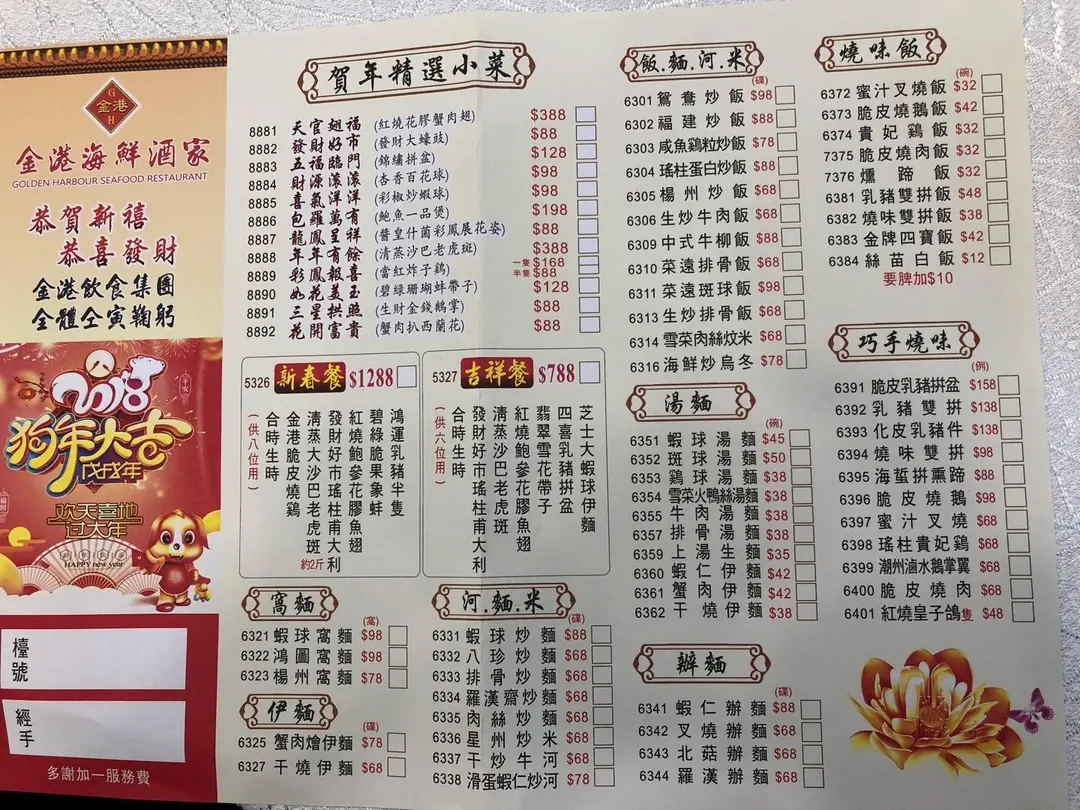 G
金港
H
金港海鮮酒家
GOLDEN HARBOUR SEAFOOD RESTAURANT
恭賀新禧
恭喜發財
金港飲食集團
全體仝寅鞠躬
2018
狗年大吉
戊戌年
平安
欢天喜地
过大年
HAPPY new year
檯號
經手
多謝加一服務費
賀年精選小菜
8881 天官翅福 (紅燒花膠蟹肉翅) $388
8882 發財好市 (發財大蠔豉) $88
8883 五福臨門 (錦繡拼盆) $128
8884 財源滾滾 (杏香百花球) $98
8885 喜氣洋洋 (彩椒炒蝦球) $98
8886 包羅萬有 (鮑魚一品煲) $198
8887 龍鳳呈祥 (醬皇什菌彩鳳展花姿) $88
8888 年年有餘 (清蒸沙巴老虎斑) $388
8889 彩鳳報喜 (當紅炸子鷄) 一隻$168 半隻$88
8890 如花美玉 (碧綠珊瑚蚌帶子) $128
8891 三星拱照 (生財金錢鵝掌) $88
8892 花開富貴 (蟹肉扒西蘭花) $88
5326 新春餐 $1288
鴻運乳豬半隻
碧綠脆果象蚌
紅燒鮑參花膠魚翅
發財好市瑤柱甫大利
清蒸大沙巴老虎斑 約2斤
金港脆皮燒鷄
合時生時
(供八位用)
5327 吉祥餐 $788
芝士大蝦球伊麵
四喜乳豬拼盆
翡翠雪花帶子
紅燒鮑參花膠魚翅
清蒸沙巴老虎斑
發財好市瑤柱甫大利
合時生時
(供六位用)
窩麵
(窩)
6321 蝦球窩麵 $98
6322 鴻圖窩麵 $98
6323 楊州窩麵 $78
伊麵
(碟)
6325 蟹肉燴伊麵 $78
6327 干燒伊麵 $68
河.麵.米
(碟)
6331 蝦球炒麵 $88
6332 八珍炒麵 $68
6333 排骨炒麵 $68
6334 羅漢齋炒麵 $68
6335 肉絲炒麵 $68
6336 星州炒米 $68
6337 干炒牛河 $68
6338 滑蛋蝦仁炒河 $78
飯.麵.河.米
(碟)
6301 鴛鴦炒飯 $98
6302 福建炒飯 $88
6303 咸魚鷄粒炒飯 $78
6304 瑤柱蛋白炒飯 $88
6305 楊州炒飯 $68
6306 生炒牛肉飯 $68
6309 中式牛柳飯 $88
6310 菜遠排骨飯 $68
6311 菜遠斑球飯 $98
6313 生炒排骨飯 $68
6314 雪菜肉絲炆米 $68
6316 海鮮炒烏冬 $78
湯麵
(碗)
6351 蝦球湯麵 $45
6352 斑球湯麵 $50
6353 鷄球湯麵 $38
6354 雪菜火鴨絲湯麵 $38
6355 牛肉湯麵 $38
6357 排骨湯麵 $38
6359 上湯生麵 $35
6360 蝦仁伊麵 $42
6361 蟹肉伊麵 $42
6362 干燒伊麵 $38
辦麵
(碟)
6341 蝦仁辦麵 $88
6342 叉燒辦麵 $68
6343 北菇辦麵 $68
6344 羅漢辦麵 $68
燒味飯
(碗)
6372 蜜汁叉燒飯 $32
6373 脆皮燒鵝飯 $42
6374 貴妃鷄飯 $32
7375 脆皮燒肉飯 $32
7376 燻蹄飯 $32
6381 乳豬雙拼飯 $48
6382 燒味雙拼飯 $38
6383 金牌四寶飯 $42
6384 絲苗白飯 $12
要髀加$10
巧手燒味
(例)
6391 脆皮乳豬拼盆 $158
6392 乳豬雙拼 $138
6393 化皮乳豬件 $138
6394 燒味雙拼 $98
6395 海蜇拼熏蹄 $88
6396 脆皮燒鵝 $98
6397 蜜汁叉燒 $68
6398 瑤柱貴妃鷄 $68
6399 潮州滷水鵝掌翼 $68
6400 脆皮燒肉 $68
6401 紅燒皇子鴿隻 $48